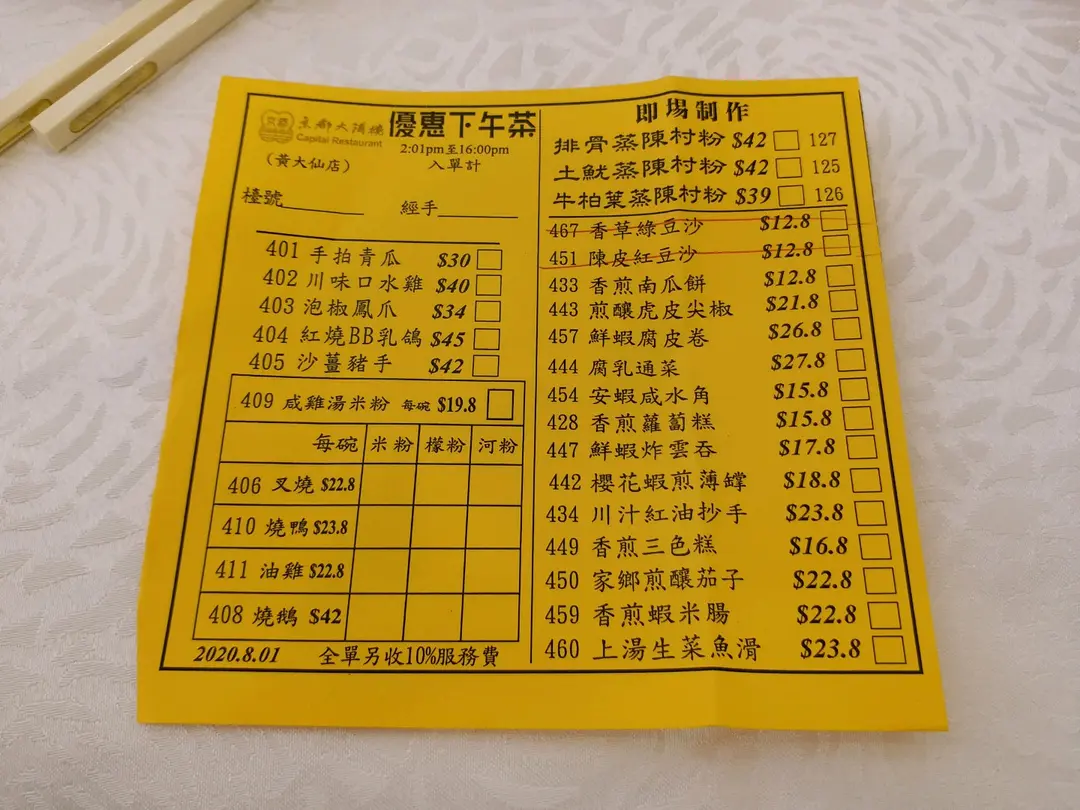 京都大酒樓
Capital Restaurant
(黃大仙店)
優惠下午茶
2:01pm至16:00pm
入單計
檯號
經手
401 手拍青瓜 $30
402 川味口水雞 $40
403 泡椒鳳爪 $34
404 紅燒BB乳鴿 $45
405 沙薑豬手 $42
409 咸雞湯米粉 每碗 $19.8
每碗 米粉 檬粉 河粉
406 叉燒 $22.8
410 燒鴨 $23.8
411 油雞 $22.8
408 燒鵝 $42
2020.8.01 全單另收10%服務費
即場制作
排骨蒸陳村粉 $42 127
土魷蒸陳村粉 $42 125
牛柏葉蒸陳村粉 $39 126
467 香草綠豆沙 $12.8
451 陳皮紅豆沙 $12.8
433 香煎南瓜餅 $12.8
443 煎釀虎皮尖椒 $21.8
457 鮮蝦腐皮卷 $26.8
444 腐乳通菜 $27.8
454 安蝦咸水角 $15.8
428 香煎蘿蔔糕 $15.8
447 鮮蝦炸雲吞 $17.8
442 櫻花蝦煎薄罉 $18.8
434 川汁紅油抄手 $23.8
449 香煎三色糕 $16.8
450 家鄉煎釀茄子 $22.8
459 香煎蝦米腸 $22.8
460 上湯生菜魚滑 $23.8